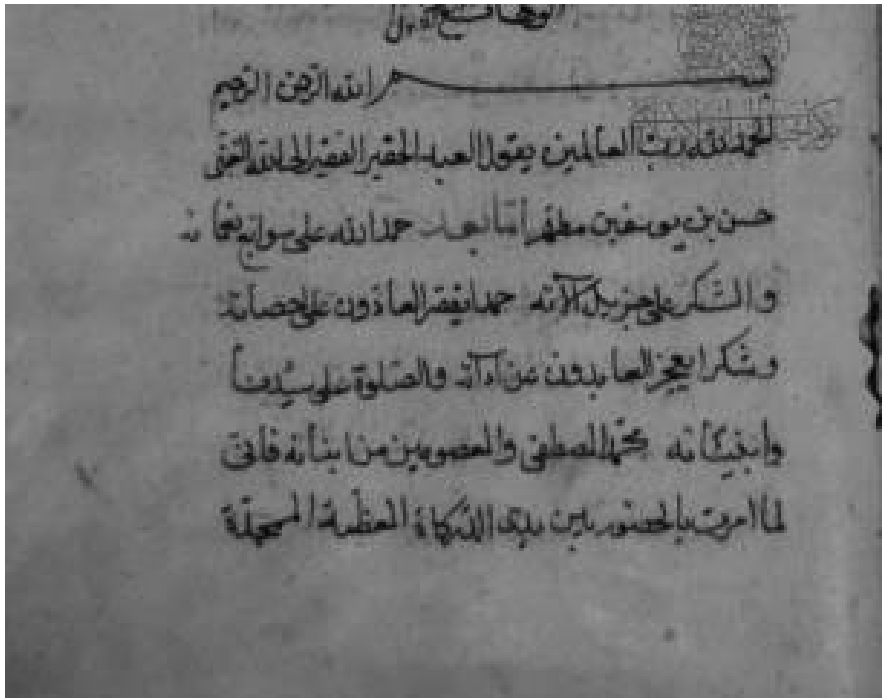 بسم الله الرحمن الرحيم
الحمد لله رب العالمين يقول العبد الحقير الفقير الى الله الغنى
حسن بن يوسف بن مطهر اما بعد حمد الله على سوابغ نعمائه
والشكر على جزيل آلائه حمدا يفقر العادون على احصائه
وشكرا يعجز العابدون عن ادائه والصلوة على سيد
وانبيائه محمد المصطفى والمعصومين من ابنائه فانى
لما امرت بالحضور بين يدى المعظمة